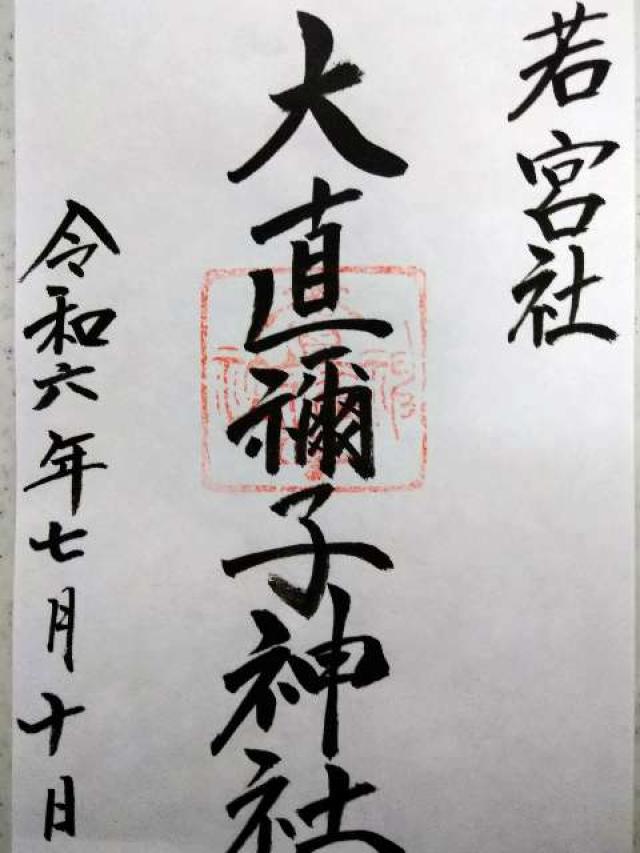 若宮社
大直禰子神社
令和六年七月十日